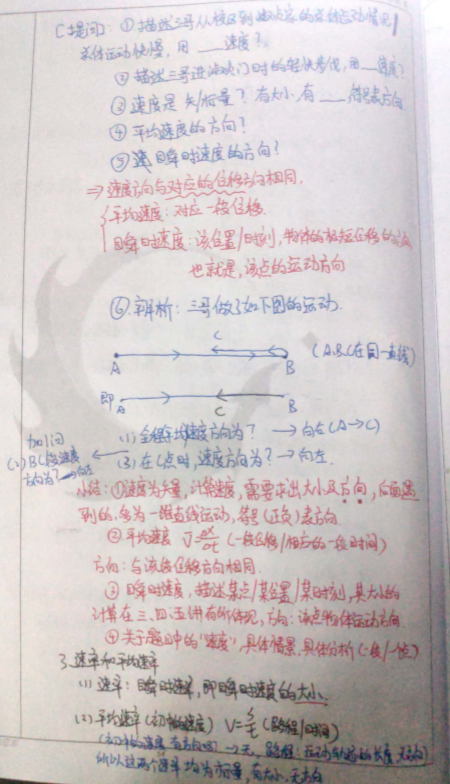 [提问]: ①描述三哥从校区到 的总体运动情况
总体运动快慢, 用 ___速度?
②描述三哥进 门时的轻快步伐, 用__速度?
③速度是 矢/标量? 有大小, 有 ___, 符号表方向
④平均速度的方向?
⑤瞬时速度的方向?
⇒速度方向与对应的位移方向相同.
平均速度: 对应一段位移
瞬时速度: 该位置/时刻, 物体的极短位移的方向
也就是, 该点的运动方向
⑥辨析: 三哥做了如下图的运动.
C
A B (A、B、C在同一直线)
即 A C B
(1) 全程平均速度方向为? → 向右 (A→C)
加问
(2) BC段速度方向为? → 向左
(3) 在C点时, 速度方向为? → 向左.
小结: ①速度为矢量, 计算速度, 需要求出大小及方向, 后面遇
到的, 多为一维直线运动, 符号(正负)表方向
②平均速度 v̄=Δx/Δt (一段位移/相应的一段时间)
方向: 与该段位移方向相同.
③瞬时速度, 描述某点/某位置/某时刻, 其大小的
计算在三、四、五讲有所体现, 方向: 该点物体运动方向
④关于题目中的“速度”, 具体情景, 具体分析 (一段/一点)
3. 速率和平均速率
(1) 速率: 瞬时速率, 即瞬时速度的大小.
(2) 平均速率 (初中的速度) V=s/t (路程/时间)
(初中的速度有方向吗 → 无, 路程: 在运动轨迹的长度 无方向)
所以这两个速率均为标量, 有大小, 无方向